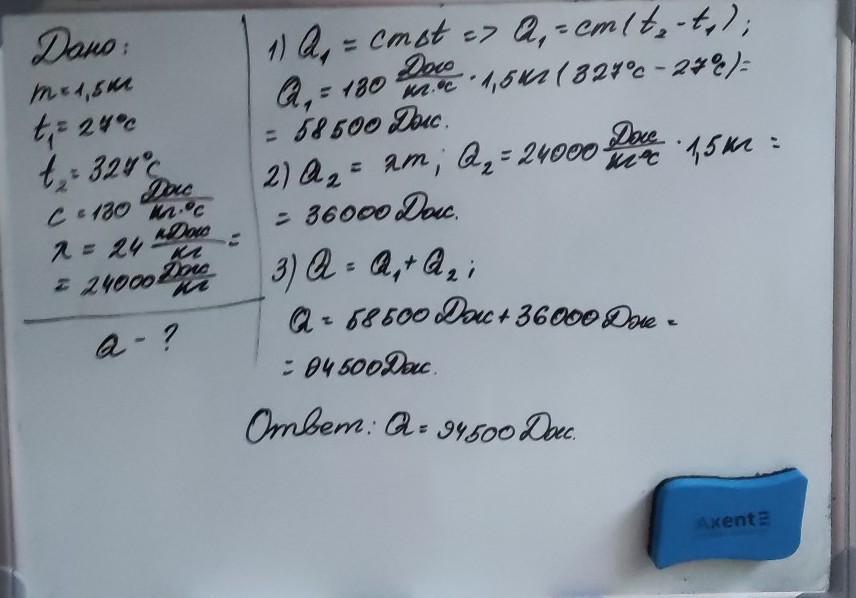 Дано:
m = 1,5 кг
t₁ = 27°C
t₂ = 327°C
c = 130 Дж/кг·°C
λ = 24 кДж/кг =
= 24000 Дж/кг
Q - ?
1) Q₁ = cmΔt => Q₁ = cm(t₂ - t₁);
Q₁ = 130 Дж/кг·°C · 1,5 кг (327°C - 27°C) =
= 58500 Дж.
2) Q₂ = λm; Q₂ = 24000 Дж/кг°C · 1,5 кг =
= 36000 Дж.
3) Q = Q₁ + Q₂;
Q = 58500 Дж + 36000 Дж =
= 94500 Дж.
Ответ: Q = 94500 Дж.
Axent